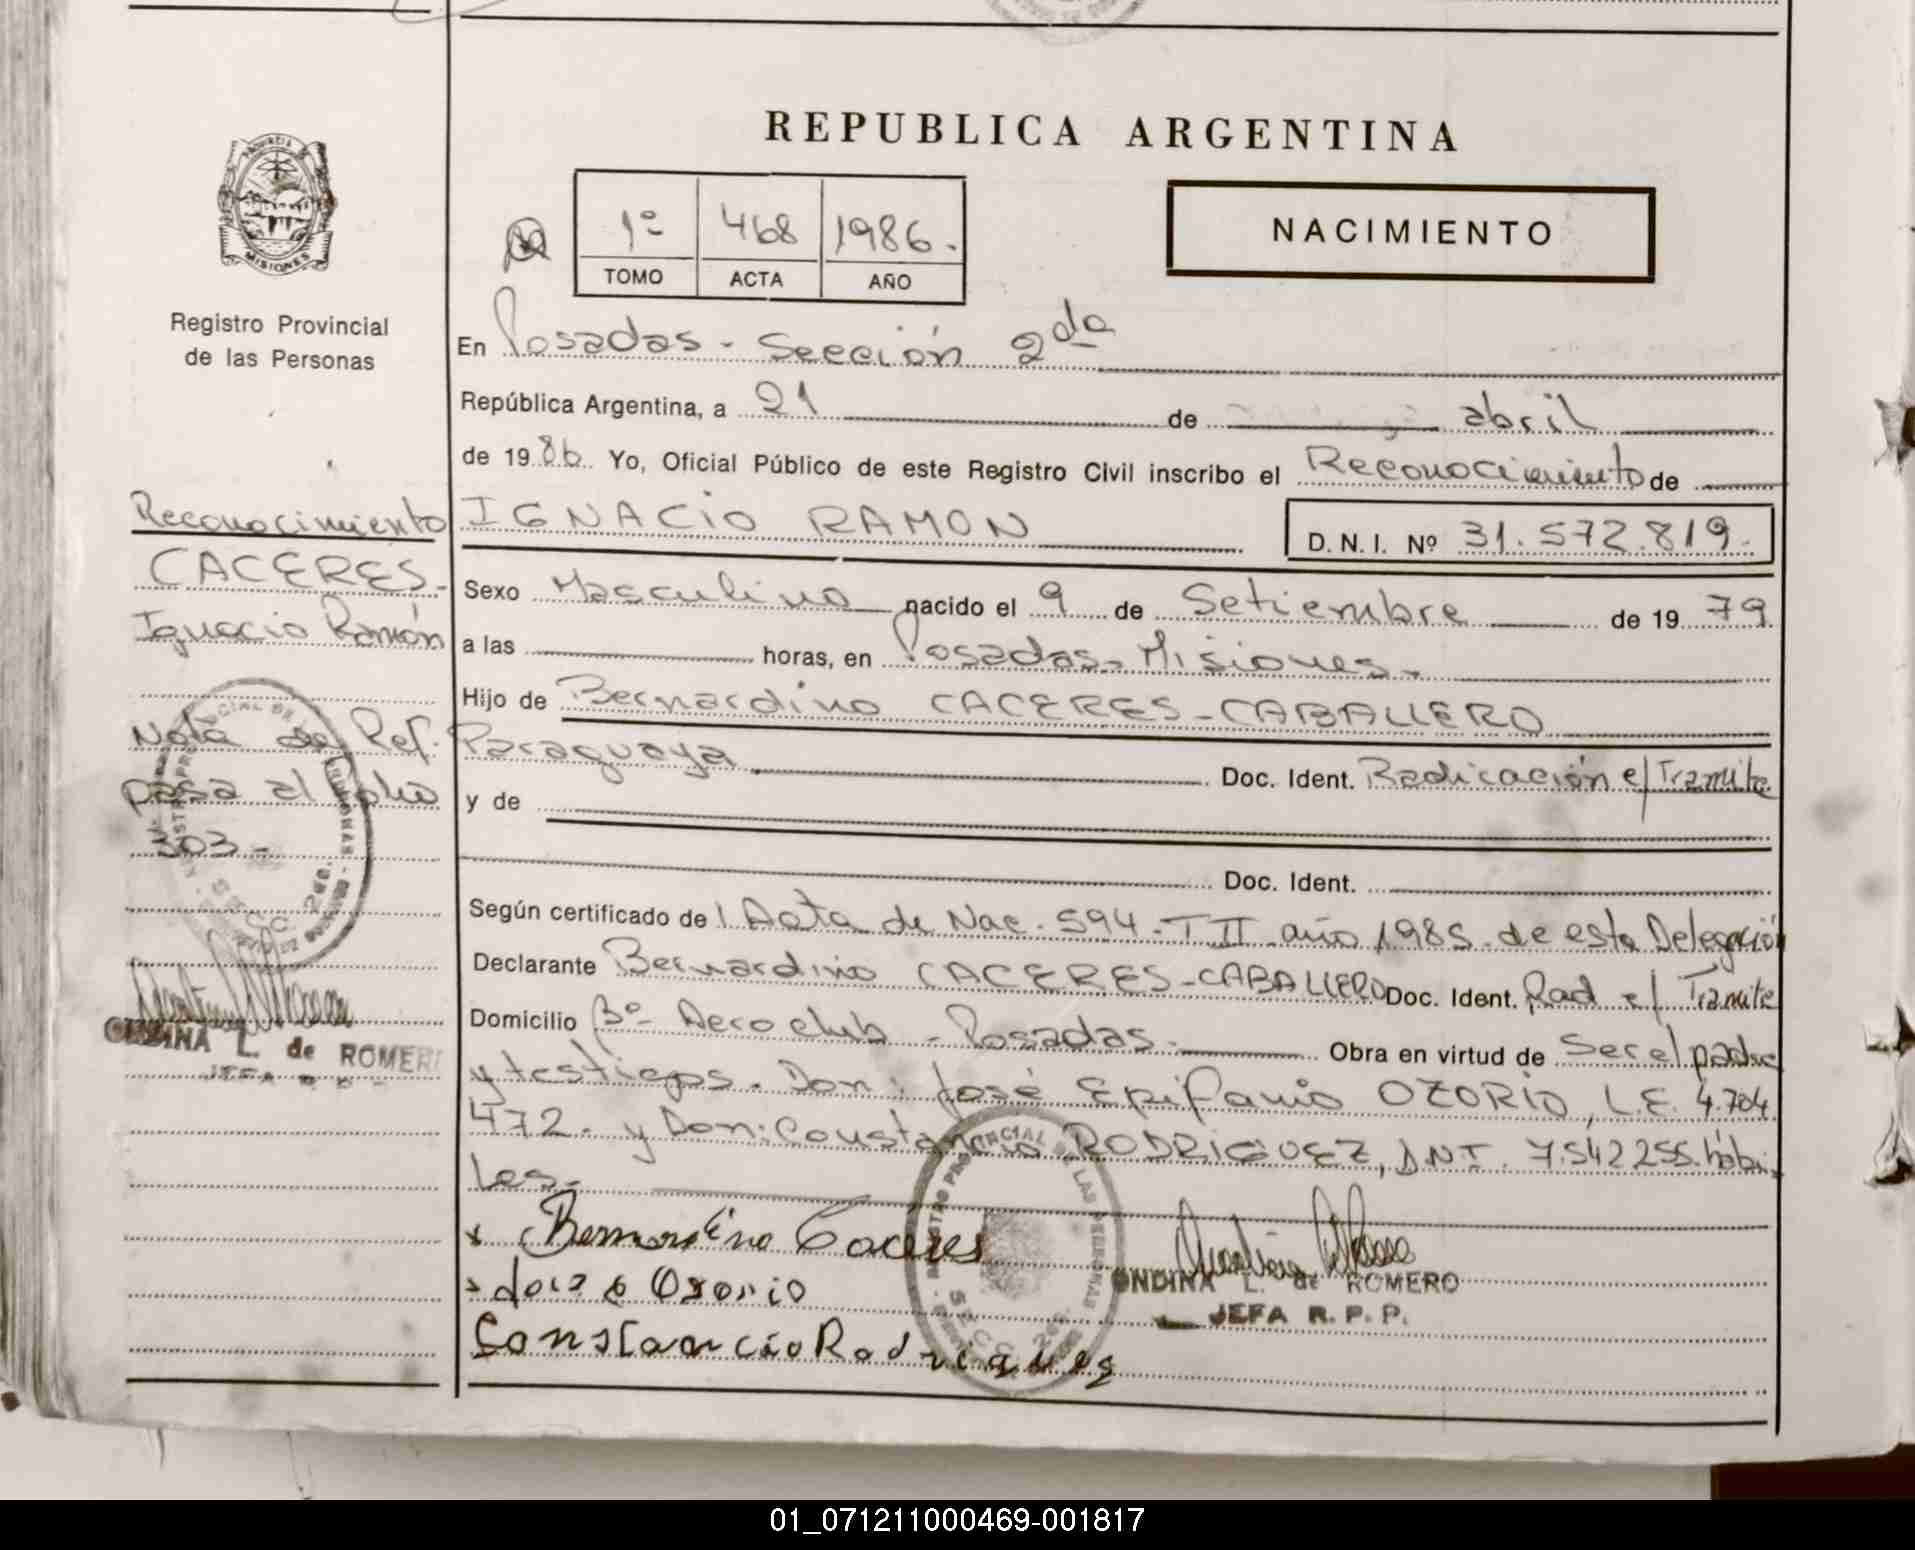 REPUBLICA ARGENTINA
1º 468 1986.
TOMO ACTA AÑO
NACIMIENTO
MISIONES
Registro Provincial
de las Personas
Reconocimiento
CACERES-
Ignacio Ramón
Nota de Ref.
pasa al folio
303-
ONDINA L. de ROMERO
En Posadas - Sección 2da
República Argentina, a 21 de abril
de 1986 Yo, Oficial Público de este Registro Civil inscribo el Reconocimiento de
IGNACIO RAMON D.N.I. Nº 31.572.819.
Sexo Masculino nacido el 9 de Setiembre de 1979
a las horas, en Posadas - Misiones -
Hijo de Bernardino CACERES-CABALLERO
Paraguaya Doc. Ident. Radicación e/ Tramite
y de
Doc. Ident.
Según certificado de Acta de Nac. 594 - T II año 1985 de esta Delegación
Declarante Bernardino CACERES-CABALLERO Doc. Ident. Rad e/ Tramite
Domicilio Bº Aeroclub - Posadas - Obra en virtud de Ser el padre
y testigos. Don: José Epifanio OZORIO, L.E. 4.704
472. y Don: Constancio RODRIGUEZ, D.N.I. 7.542255. hábi-
les -
x Bernardino Caceres
Jose e Osorio
Constancio Rodriguez
ONDINA L. de ROMERO
JEFA R. P. P.
01_071211000469-001817